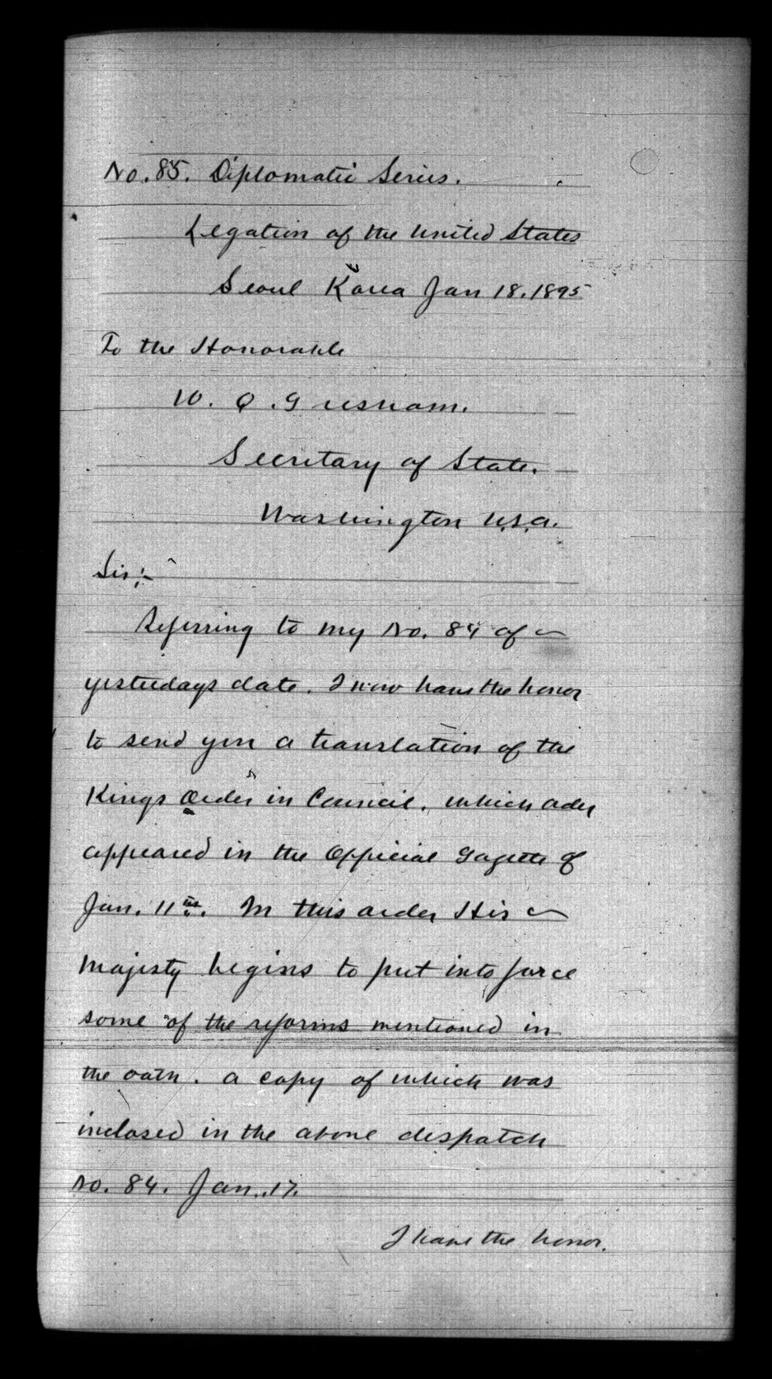 No. 85. Diplomatic Series.
Legation of the United States
Seoul Korea Jan 18. 1895
To the Honorable
W. Q. Gresham.
Secretary of State.
Washington U.S.A.
Sir:-
Referring to my No. 84 of
yesterdays date. I now have the honor
to send you a translation of the
Kings Order in Council, which order
appeared in the Official Gazette of
Jan. 11th. In this order His
Majesty begins to put into force
some of the reforms mentioned in
the oath. a copy of which was
inclosed in the above dispatch
No. 84. Jan. 17.
I have the honor.